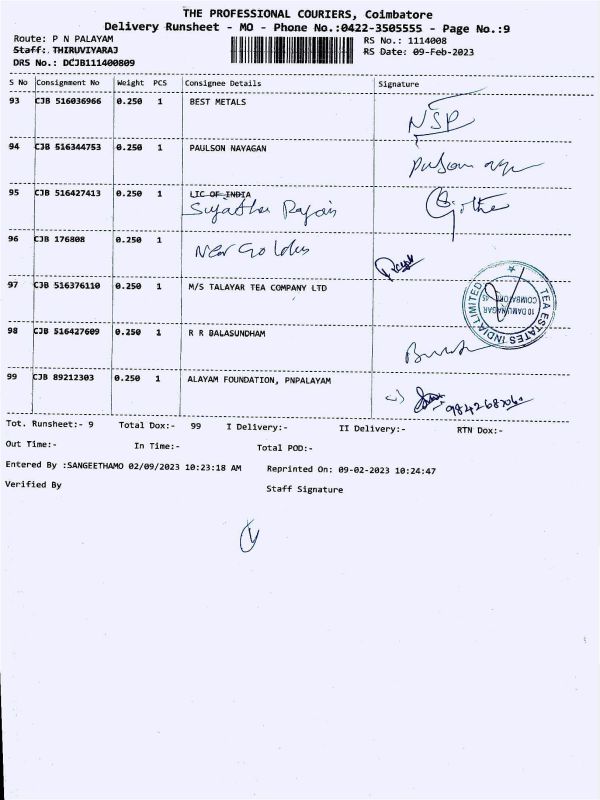 THE PROFESSIONAL COURIERS, Coimbatore
Delivery Runsheet - MO - Phone No.:0422-3505555 - Page No.:9
Route: P N PALAYAM
RS No.: 1114008
Staff: THIRUVIYARAJ
RS Date: 09-Feb-2023
DRS No.: DCJB111400809
S No Consignment No Weight PCS Consignee Details Signature
93 CJB 516036966 0.250 1 BEST METALS
NSP
94 CJB 516344753 0.250 1 PAULSON NAYAGAN
95 CJB 516427413 0.250 1 LIC OF INDIA
Sujatha Rajan
96 CJB 176808 0.250 1
New Goldes
97 CJB 516376110 0.250 1 M/S TALAYAR TEA COMPANY LTD
TEA ESTATES INDIA LIMITED
98 CJB 516427609 0.250 1 R R BALASUNDHAM
99 CJB 89212303 0.250 1 ALAYAM FOUNDATION, PNPALAYAM
Tot. Runsheet:- 9 Total Dox:- 99 I Delivery:- II Delivery:- RTN Dox:-
Out Time:- In Time:- Total POD:-
Entered By :SANGEETHAMO 02/09/2023 10:23:18 AM Reprinted On: 09-02-2023 10:24:47
Verified By Staff Signature